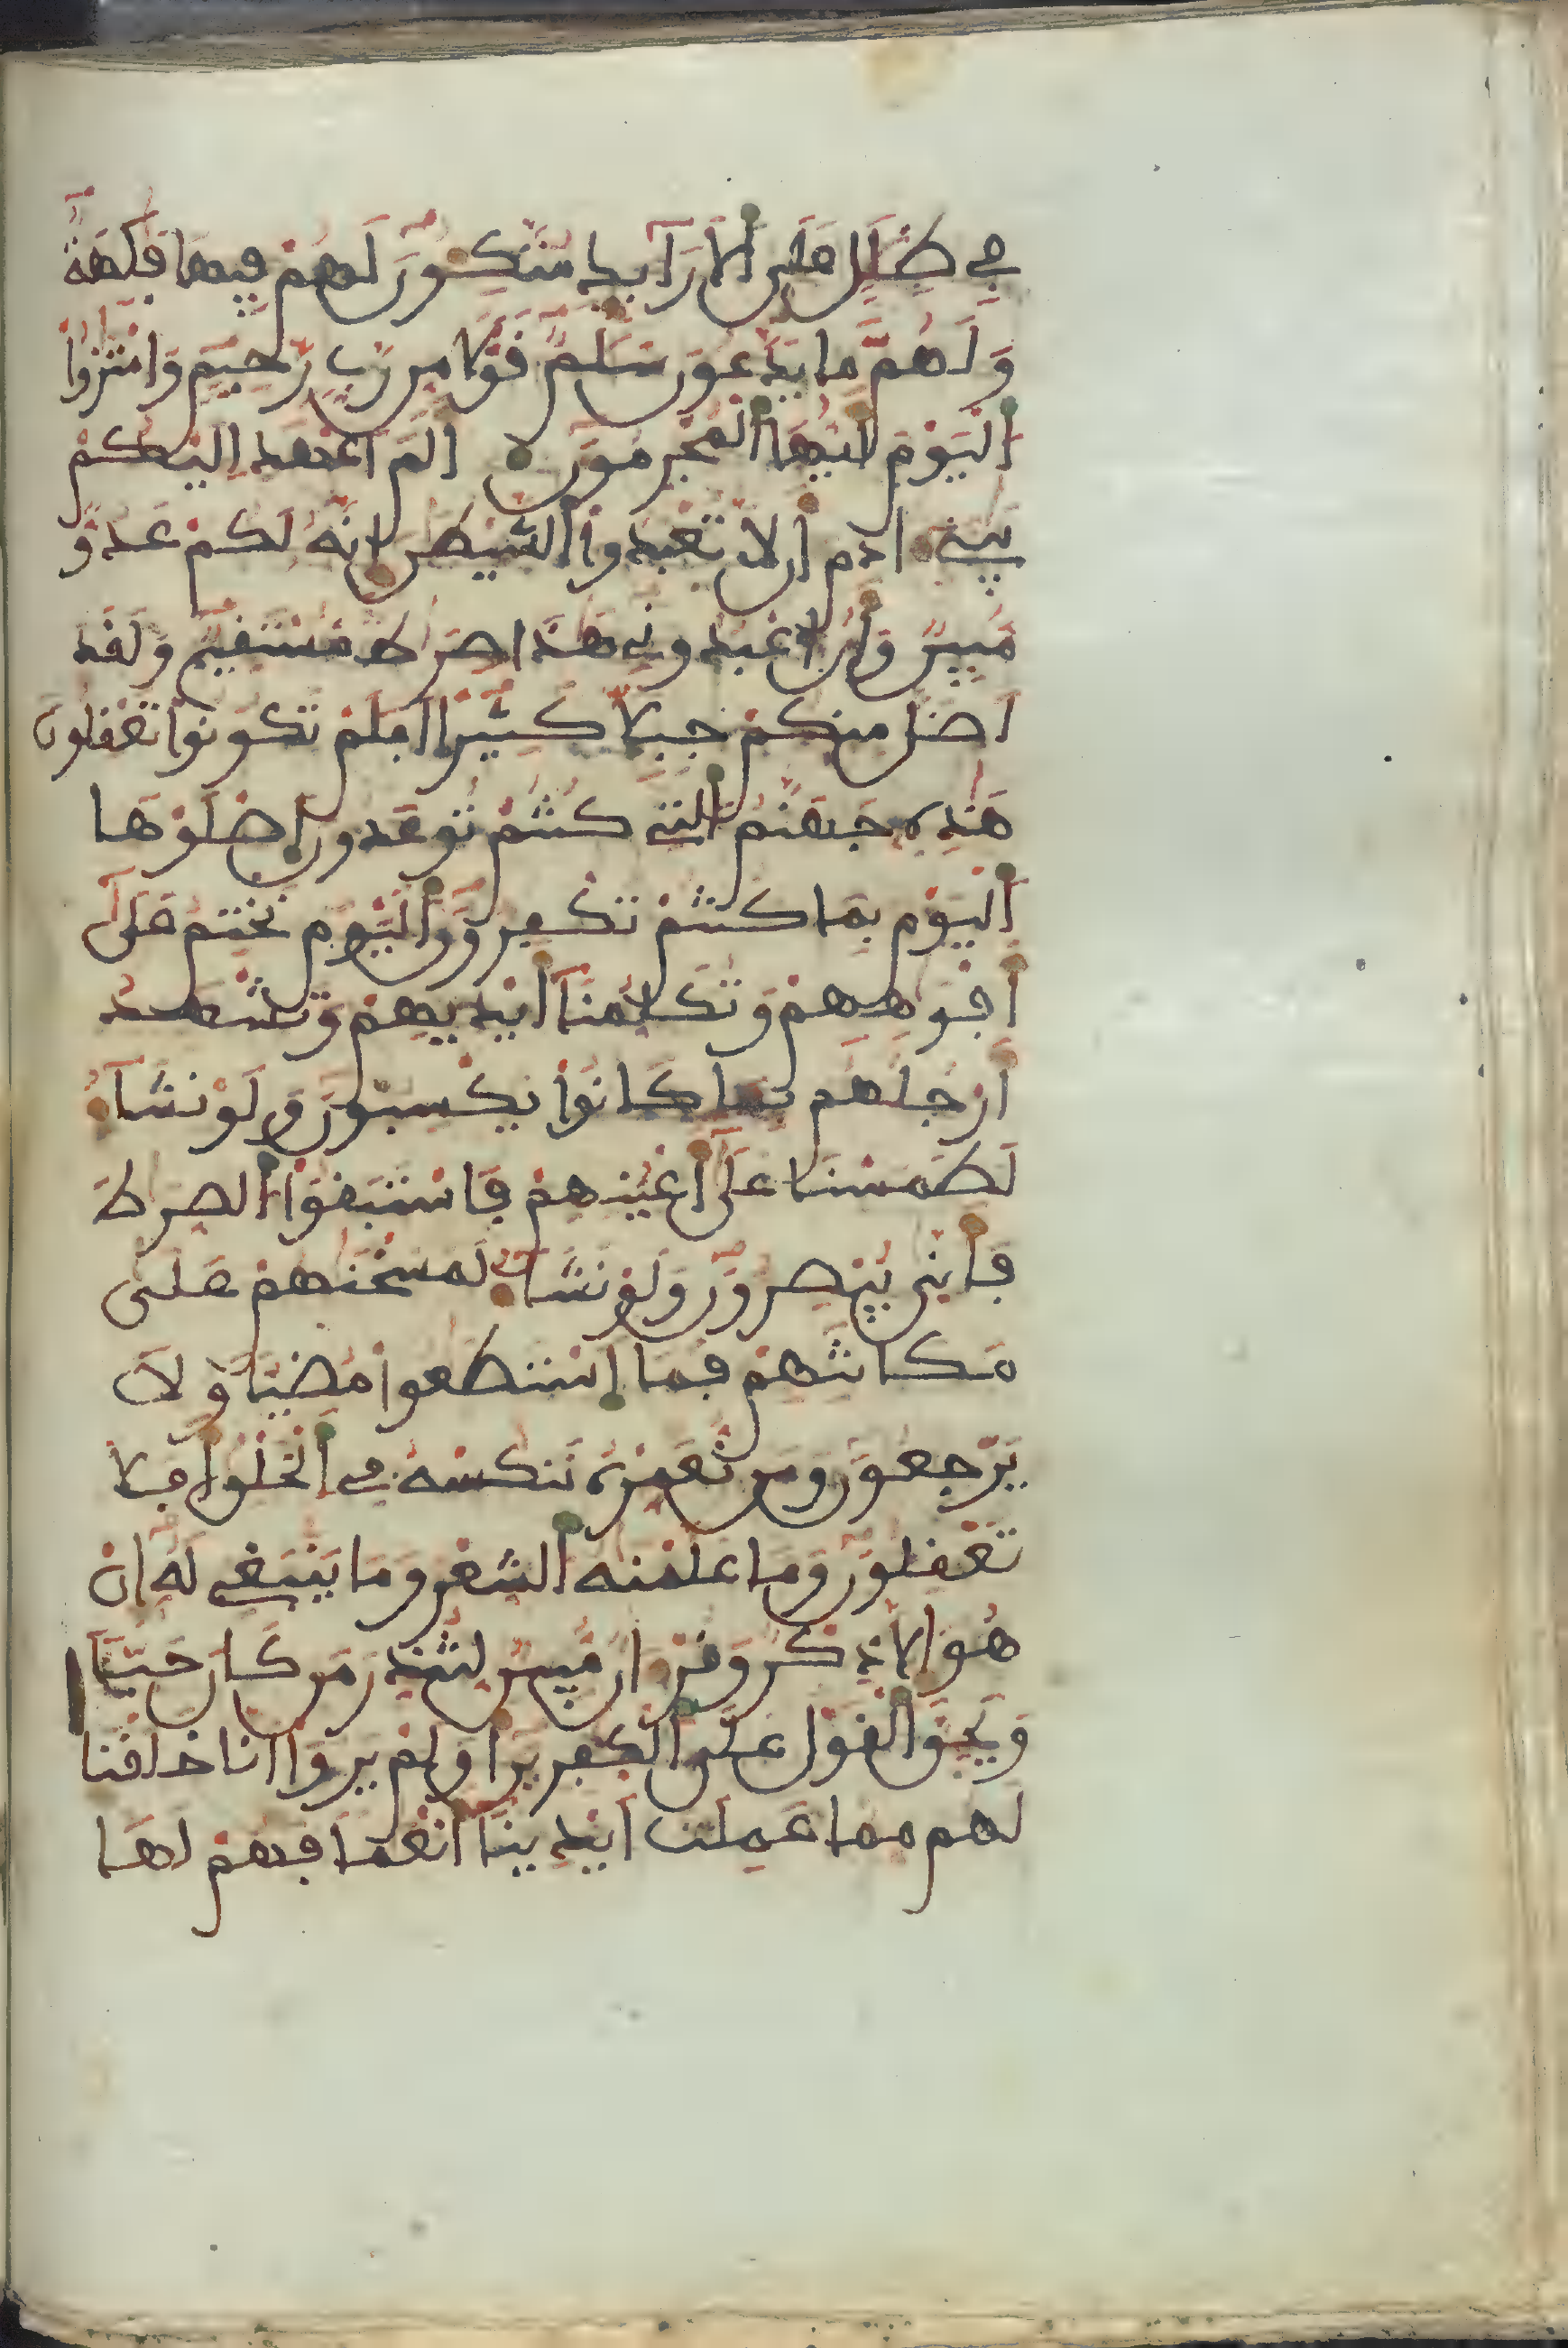 في ظلل على الارايك متكون لهم فيها فكهة
ولهم ما يدعون سلم قولا من رب رحيم وامتزوا
اليوم ايها المجرمون الم اعهد اليكم
يبنے ادم ان لا تعبدوا الشيطن انه لكم عدو
مبين وان اعبدوني هذا صرط مستقيم ولقد
اضل منكم جبلا كثيرا افلم تكونوا تعقلون
هذه جهنم التي كنتم توعدون اصلوها
اليوم بما كنتم تكفرون اليوم نختم على
افوههم وتكلمنا ايديهم وتشهد
ارجلهم بما كانوا يكسبون ولو نشاء
لطمسنا على اعينهم فاستبقوا الصرط
فانى يبصرون ولو نشاء لمسخنهم على
مكانتهم فما استطعوا مضيا ولا
يرجعون ومن نعمره ننكسه في الخلق افلا
تعقلون وما علمنه الشعر وما ينبغي له ان
هو الا ذكر وقران مبين لتنذر من كان حيا
ويحق القول على الكفرين اولم يروا انا خلقنا
لهم مما عملت ايدينا انعما فهم لها